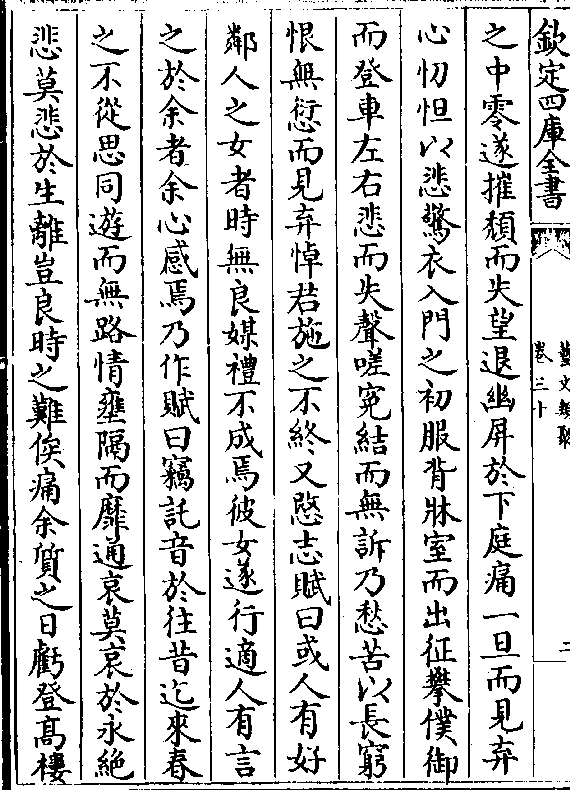 欽定四庫全書
藝文類聚
卷三十
二
之中零遂摧頽而失望退幽屏於下庭痛一旦而見弃
心忉怛以悲驚衣入門之初服背牀室而出征攀僕御
而登車左右悲而失聲嗟寃結而無訴乃愁苦以長窮
恨無愆而見弃悼君施之不終又愍志賦曰或人有好
鄰人之女者時無良媒禮不成焉彼女遂行適人有言
之於余者余心感焉乃作賦曰竊託音於往昔迄來春
之不從思同遊而無路情壅隔而靡通哀莫哀於永絶
悲莫悲於生離豈良時之難俟痛余質之日虧登髙樓